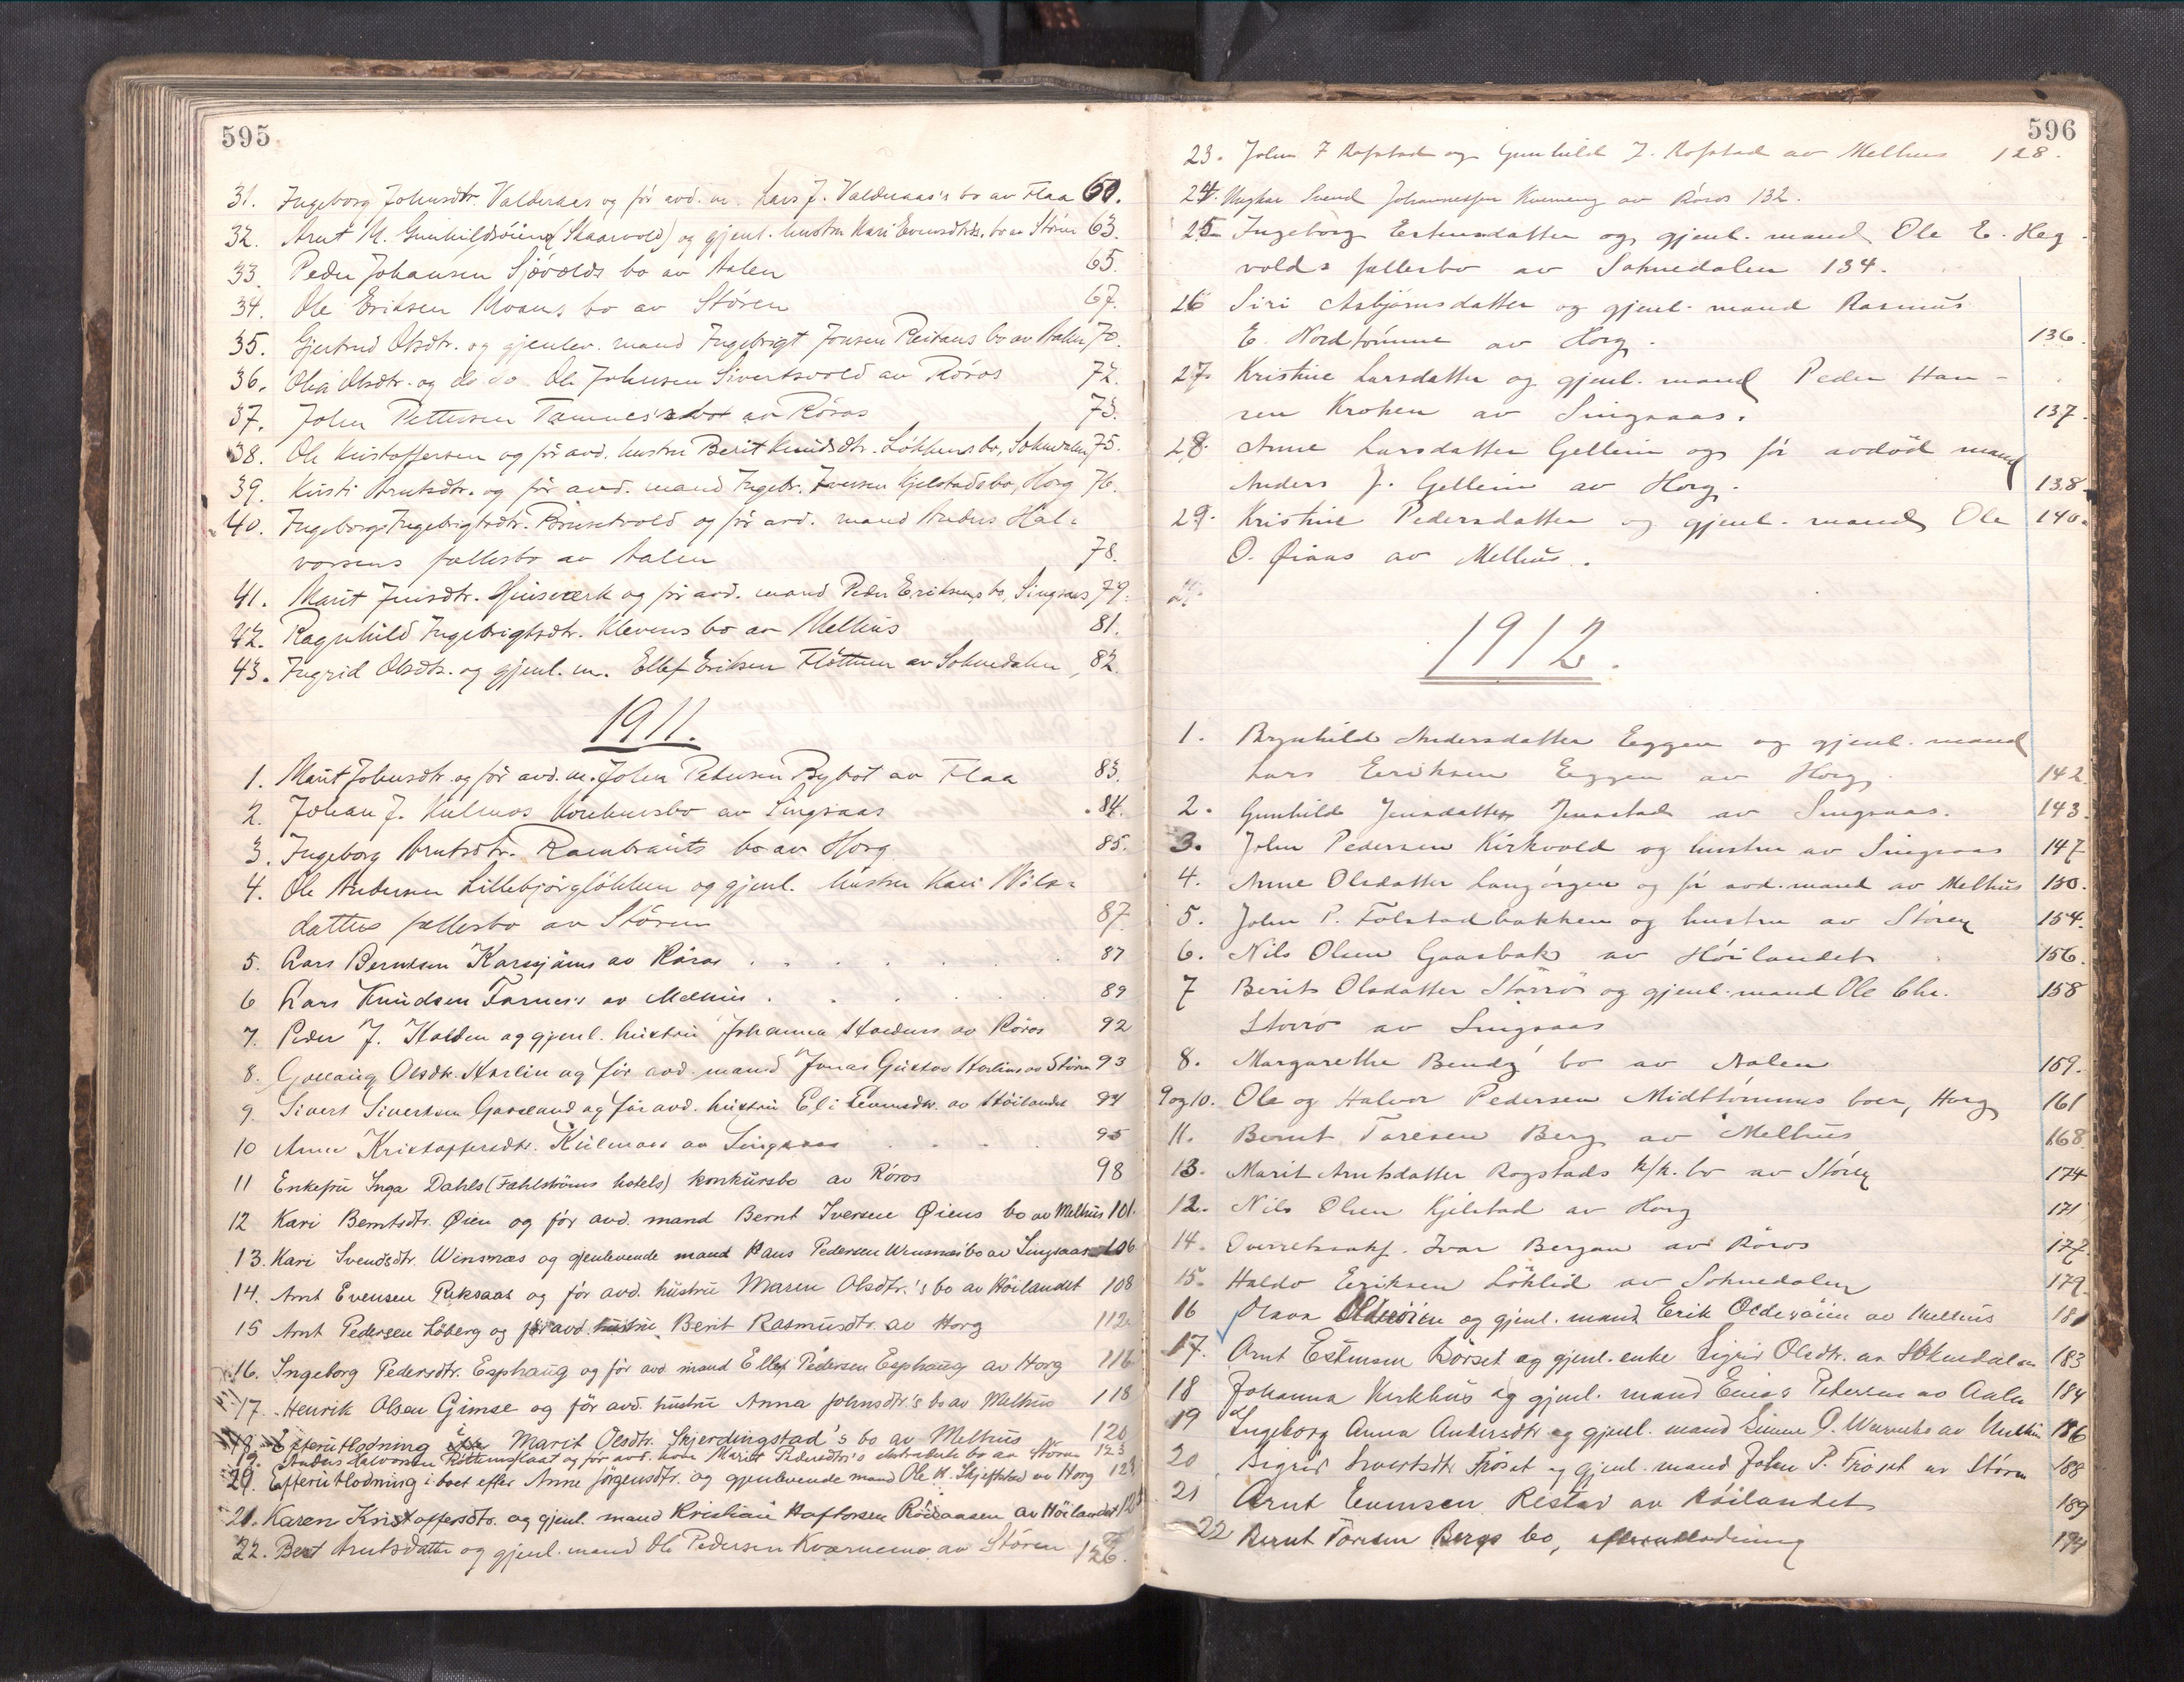 595
31. Ingeborg Johnsdtr. Valderaas og før avd. m. Lars J. Valderaas's bo av Flaa 60.
32. Arnt M. Gunhildsøien (Skaarvold) og gjenl. hustru Kari Evensdtrs. bo av Støren 63.
33. Peder Johansen Sjøvolds bo av Aalen 65.
34. Ole Eriksen Moans bo av Støren 67.
35. Gjertrud Olsdtr. og gjenlev. mand Ingebrigt Jonsen Reitans bo av Aalen 70.
36. Olia Olsdtr. og do do Ole Johnsen Sivertsvold av Røros 72.
37. John Pettersen Tamnes's bo av Røros 73.
38. Ole Kristoffersen og før avd. hustru Berit Knudsdtr. Løkkens bo, Soknedalen 75.
39. Kirsti Arntsdtr. og før avd. mand Ingebr. Iversen Kjelstads bo, Horg 76.
40. Ingeborg Ingebrigtsdtr. og før avd. mand Anders Hal-
vorsens fællesbo av Aalen 78.
41. Marit Jensdtr. Hinsværk og før avd. mand Peder Eriksens bo, Singsaas 79.
42. Ragnhild Ingebrigtsdtr. Klevens bo av Melhus 81.
43. Ingrid Olsdtr. og gjenl. m. Ellef Eriksen Fløttum av Soknedalen, 82.
1911.
1. Marit Johnsdtr. og før avd. m. John Petersen Bybøt av Flaa 83.
2. Johan J. Kulmos konkursbo av Singsaas 84.
3. Ingeborg Arntsdtr. Rambrauts bo av Horg 85.
4. Ole Andersen Lillebjørgløkken og gjenl. hustru Kari Nils-
datters fællesbo av Støren 87.
5. Lars Berntsen av Røros 87
6 Lars Knudsen Tarnes's av Melhus 89
7. Peder J. Holden og gjenl. hustru Johanna Holdens av Røros 92
8. Gollaug Olsdtr. Harlin og før avd. mand Jonas Gustav Harlins av Støren 93
9. Sivert Sivertsen Gaasland og før avd. hustru Eli Evensdtr. av Høilandet 94
10 Anne Kristoffersdtr. Külmoes av Singsaas 95
11 Enkefru Inga Dahls (Fahlstrøms hotels) konkursbo av Røros 98
12 Kari Berntsdtr. Øien og før avd. mand Bernt Iversen Øiens bo av Melhus 101.
13. Kari Svendsdtr. Winsnæs og gjenlevende mand Hans Pedersen Winsnæs' bo av Singsaas 106
14. Arnt Evensen Reksaas og før avd. hustru Maren Olsdtr.'s bo av Höilandet 108
15 Arnt Pedersen Løberg og før avd. hustru Berit Rasmusdtr. av Horg 112
16. Ingeborg Pedersdtr. Esphaug og før avd mand Ellef Pedersen Esphaug av Horg 116
17. Henrik Olsen Gimse og før avd. hustru Anna Johnsdtr.'s bo av Melhus 118
18. Efterutlodning i Marit Olsdtr. Skjerdingstad's bo av Melhus 120
19. Anders Halvorsen og før avd. kone Marit Pedersdtr's bo av Støren 123
20. Efterutlodning i boet efter Anne Jörgensdtr. og gjenlevende mand Ole H. Skjefstad av Horg
21. Karen Kristoffersdtr. og gjenl. mand Kristian Haftorsen Röisaasen av Höilandet
22. Berit Arntsdatter og gjenl. mand Ole Pedersen Kværnemo av Støren 126.
596
23. John J Rofstad og Gunhild J. Rofstad av Melhus 128.
24. Ungkar Svend Johannessen Kverneng av Røros 132.
25 Ingeborg Estensdatter og gjenl. mand Ole E. Heg-
volds fællesbo av Soknedalen 134.
26 Siri Asbjørnsdatter og gjenl. mand Rasmus
E. Nordtømme av Horg. 136.
27. Kristine Larsdatter og gjenl. mand Peder Han-
sen Kroken av Singsaas. 137.
28. Anne Larsdatter Gellein og før avdød mand
Anders J. Gellein av Horg. 138.
29. Kristine Pedersdatter og gjenl. mand Ole 140.
O. Øiaas av Melhus.
1912.
1. Brynhild Andersdatter Eggen og gjenl. mand
Lars Eriksen Eggen av Horg. 142
2. Gunhild Jensdatter Jensstad av Singsaas. 143.
3. John Pedersen Kirkvold og hustru av Singsaas 147
4. Anne Olsdatter Langørgen og før avd. mand av Melhus 150.
5. John P. Folstadbakken og hustru av Støren 154.
6. Nils Olsen Gaasbak av Høilandet 156.
7 Berit Olsdatter Storrø og gjenl. mand Ole Chr. 158
Storrø av Singsaas
8. Margarethe Bendz' bo av Aalen 159.
9 og 10. Ole og Halvor Pedersen Midttømmes boer, Horg 161
11. Bernt Toresen Berg av Melhus 168
13. Marit Arntsdatter Rogstads k/k. bo av Støren 174
12. Nils Olsen Kjelstad av Horg 171
14. Overretssakf. Ivar Bergan av Røros 177.
15. Haldo Eriksen Løklid av Soknedalen 179.
16 Olava Olderøien og gjenl. mand Erik Olderøien av Melhus 181
17. Arnt Estensen Børset og gjenl. enke Sigrid Olsdtr. av Soknedalen 183
18 Johanna Kirkhus og gjenl. mand Enias Petersen av Aalen 184
19 Ingeborg Anna Andersdtr og gjenl. mand O. av Melhus 186
20 Sigrid Sivertsdtr Frøset og gjenl. mand John P. Frøset av Støren 188
21 Arnt Evensen Ristad av Høilandet 189
22 Bernt Toresen Bergs bo, efterutlodning 194